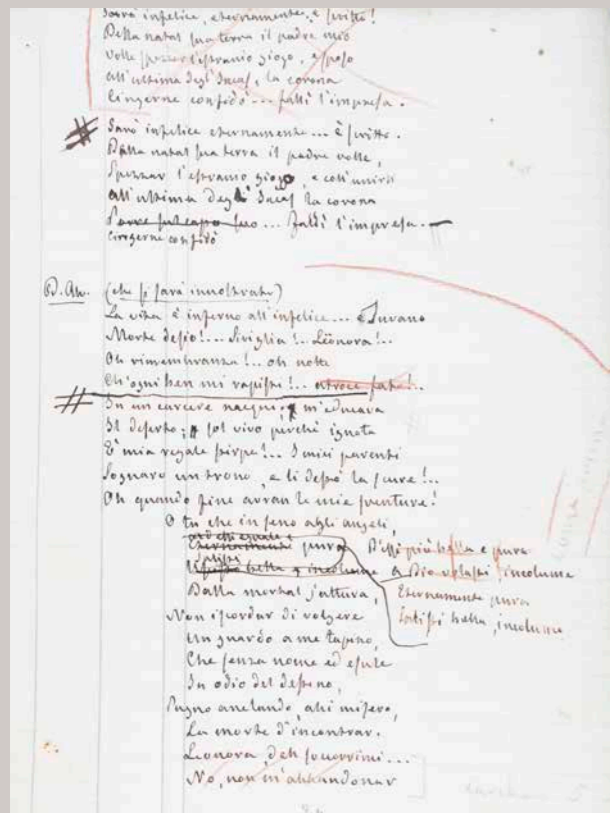 Sarò infelice, eternamente, è scritto!
Della natal sua terra il padre mio
Volle spezzar l'estranio giogo, e sposo
All'ultima degl'Incas, la corona
Cingerne confidò... fallì l'impresa.
# Sarò infelice eternamente... è scritto.
Della natal sua terra il padre volle,
Spezzar l'estranio giogo, e coll'unirsi
All'ultima degl'Incas la corona
Porre sul capo suo... Fallì l'impresa.—
Cingerne confidò
D. Alv. (che si sarà innoltrato)
La vita è inferno all'infelice... Invano
Morte desio!... Siviglia!.. Leonora!..
Oh rimembranza!.. oh notte
Ch'ogni ben mi rapisti!.. atroce fato!..
# In un carcere nacqui; m'educava
Il deserto; sol vivo perchè ignota
È mia regale stirpe!.. I miei parenti
Sognaro un trono, e li destò la scure!..
Oh quando fine avran le mie sventure!
O tu che in seno agli angeli,
Eternamente pura Bella più bella e pura
Salisti bella, incolume A Dio volasti incolume
Dalla mortal jattura, Eternamente pura
Non iscordar di volgere Salisti bella, incolume
Un guardo a me tapino,
Che senza nome ed esule
In odio del destino,
Pugno anelando, ahi misero,
La morte d'incontrar.
Leonora, deh soccorrimi...
No, non m'abbandonar